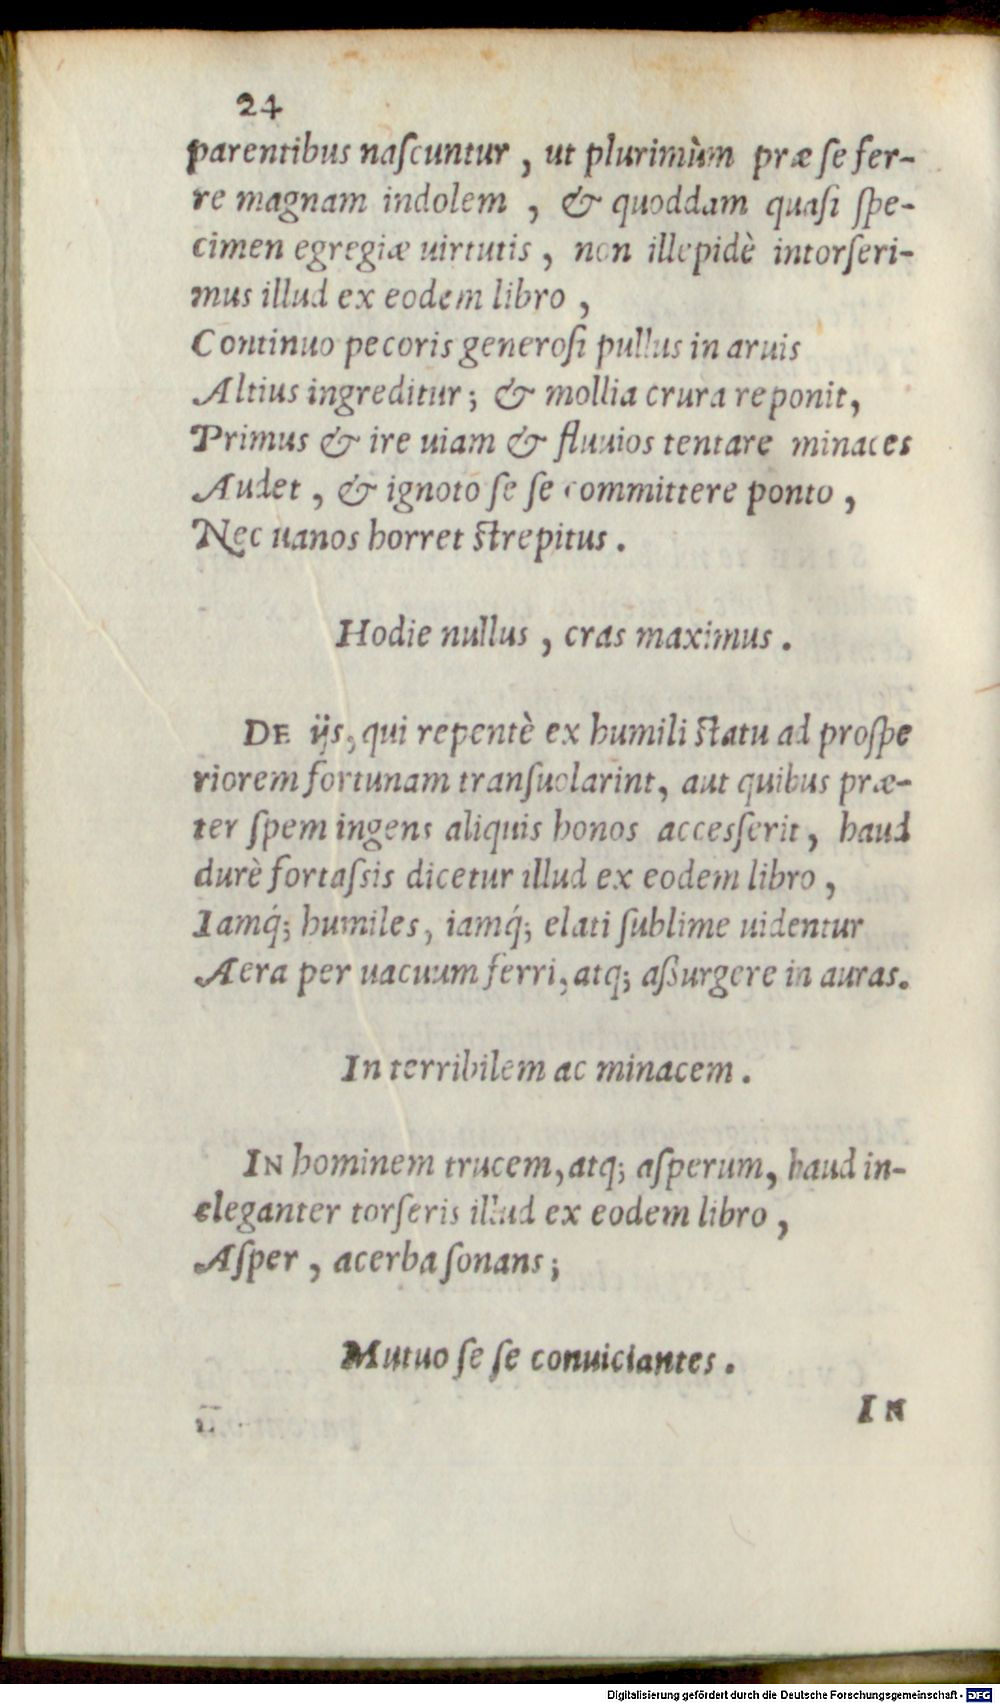 24
parentibus naſcuntur, ut plurimùm præ ſe fer-
re magnam indolem, & quoddam quaſi ſpe-
cimen egregiæ uirtutis, non illepidè intorſeri-
mus illud ex eodem libro,
Continuo pecoris generoſi pullus in aruis
Altius ingreditur; & mollia crura reponit,
Primus & ire uiam & fluuios tentare minaces
Audet, & ignoto ſe ſe committere ponto,
Nec uanos horret ſtrepitus.
Hodie nullus, cras maximus.
DE ijs, qui repentè ex humili ſtatu ad proſpe
riorem fortunam tranſuolarint, aut quibus præ-
ter ſpem ingens aliquis honos acceſſerit, haud
durè fortaſſis dicetur illud ex eodem libro,
Iamq́; humiles, iamq́; elati ſublime uidentur
Aera per uacuum ferri, atq; aßurgere in auras.
In terribilem ac minacem.
IN hominem trucem, atq; aſperum, haud in-
eleganter torſeris illud ex eodem libro,
Aſper, acerba ſonans;
Mutuo ſe ſe conuiciantes.
IN
Digitalisierung gefördert durch die Deutsche Forschungsgemeinschaft - DFG